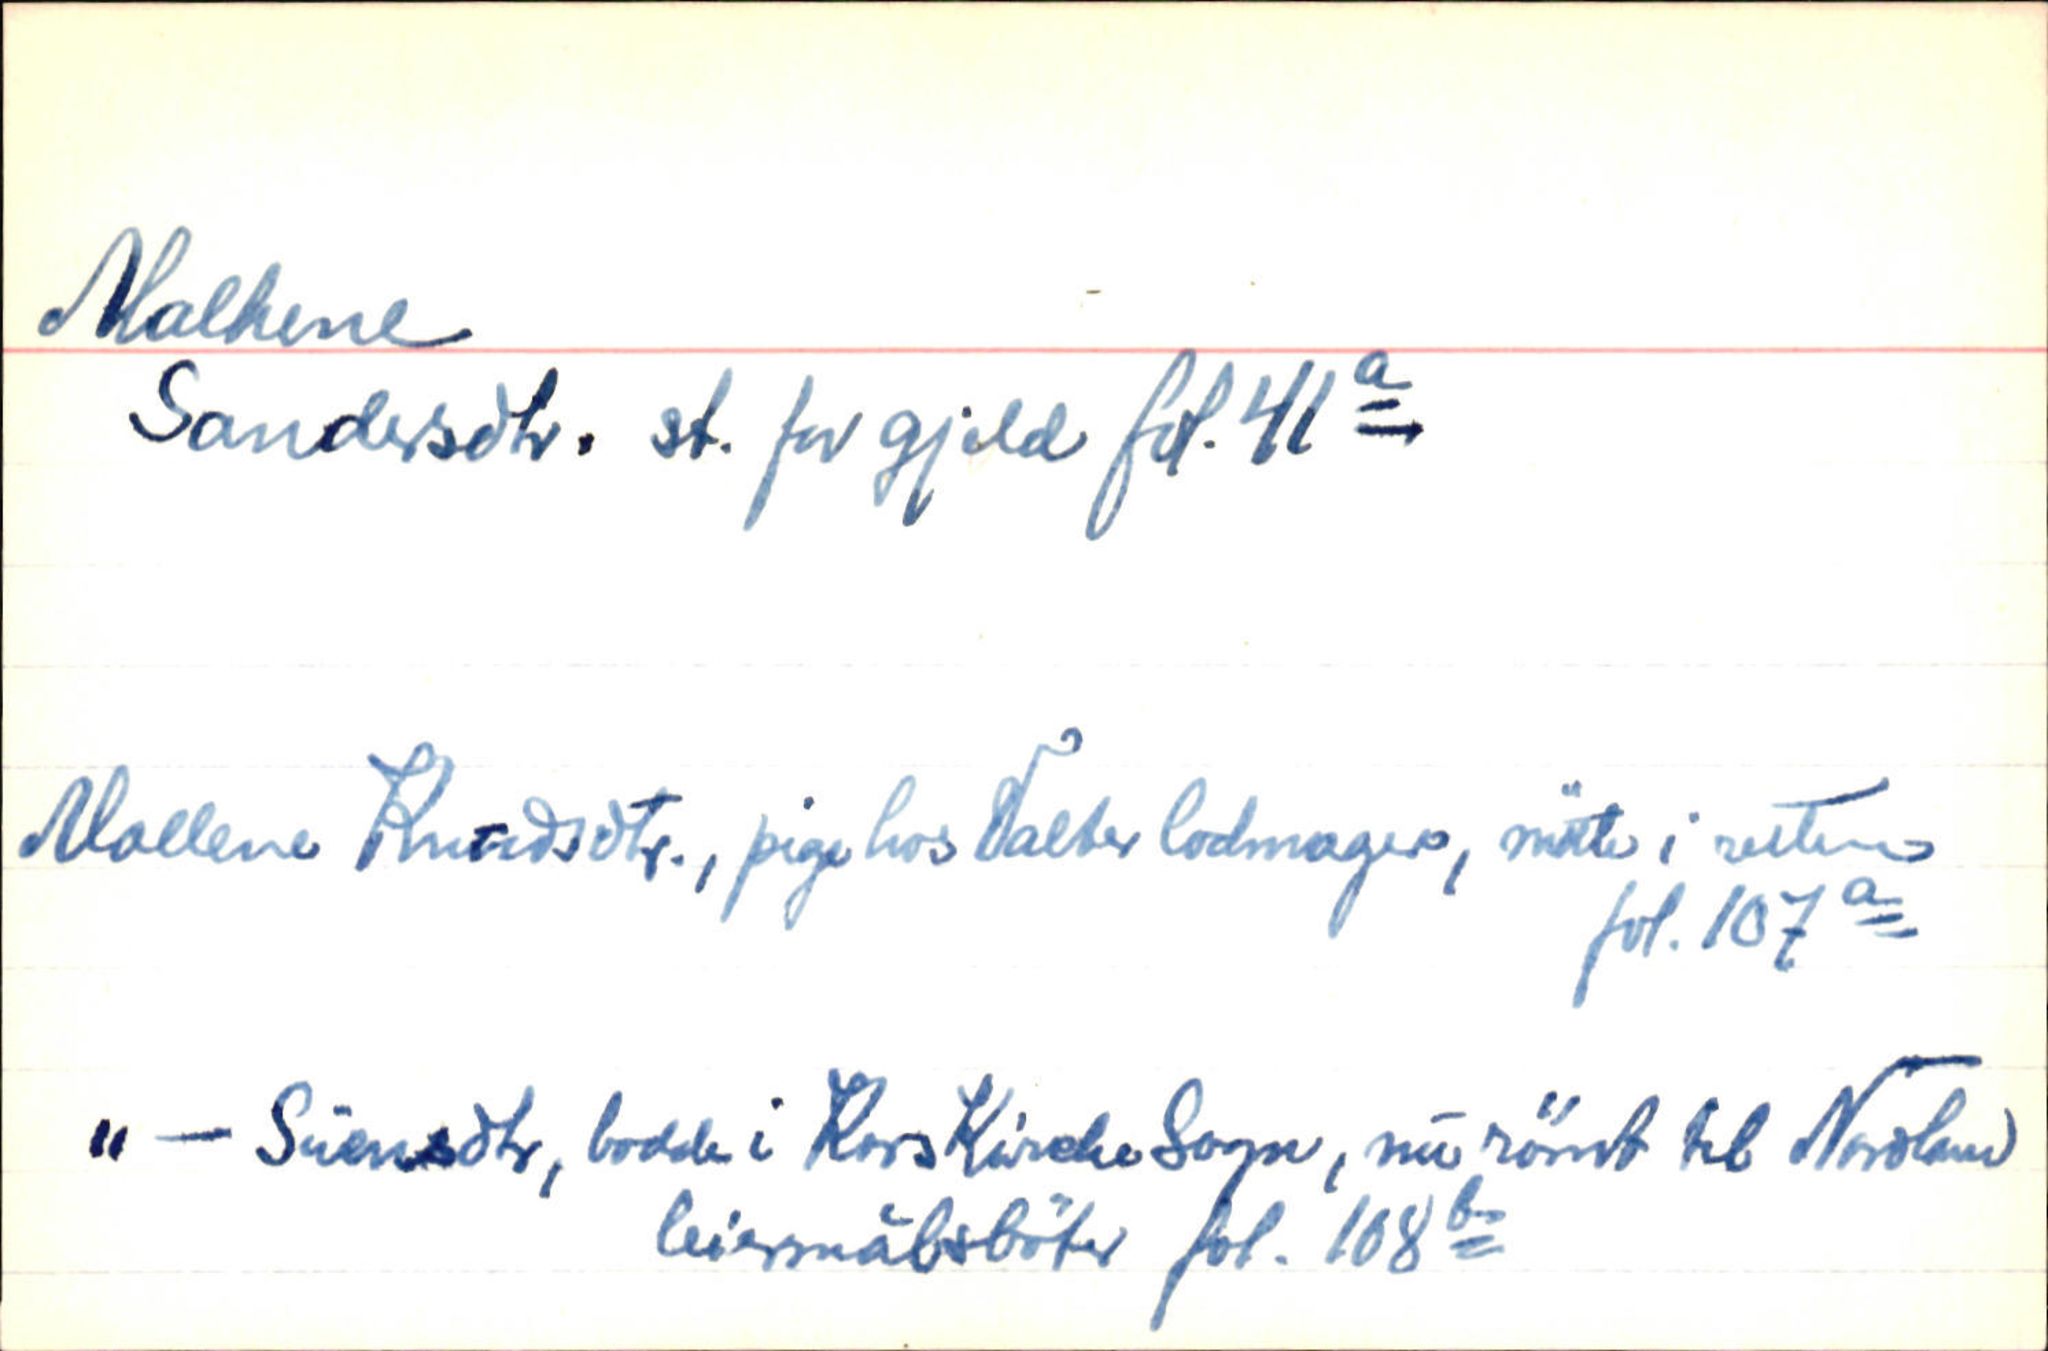 Malhene
Sandersdtr. st. for gjeld fol. 41 a
Mallene Knudsdtr., pige hos Valter lodmager, mötte i retten
fol. 107 a
" — Süensdtr, bodde i Kors Kirche Sogn, nu römt til Nordland
leiermålsböter fol. 108 b